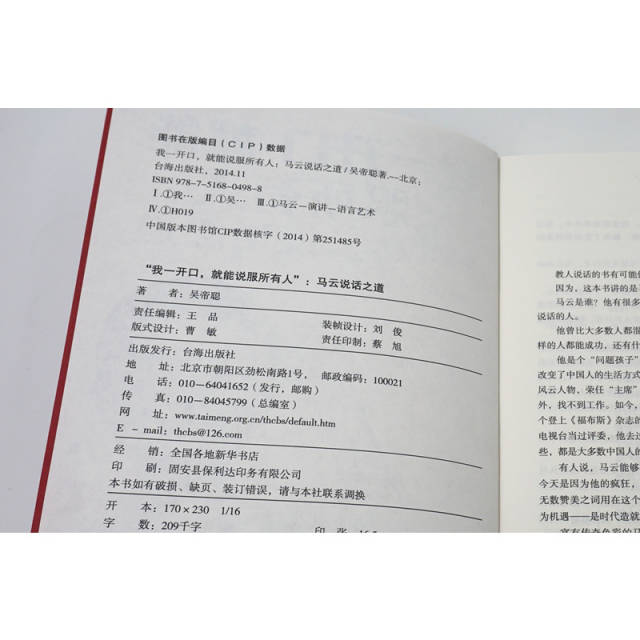 图书在版编目（CIP）数据
我一开口，就能说服所有人：马云说话之道/吴帝聪著.—北京：
台海出版社，2014.11
ISBN 978-7-5168-0498-8
Ⅰ.①我… Ⅱ.①吴… Ⅲ.①马云—演讲—语言艺术
Ⅳ.①H019
中国版本图书馆CIP数据核字（2014）第251485号
“我一开口，就能说服所有人”：马云说话之道
著 者：吴帝聪
责任编辑：王 品 装帧设计：刘 俊
版式设计：曹 敏 责任印制：蔡 旭
出版发行：台海出版社
地 址：北京市朝阳区劲松南路1号， 邮政编码：100021
电 话：010—64041652（发行，邮购）
传 真：010—84045799（总编室）
网 址：www.taimeng.org.cn/thcbs/default.htm
E－mail：thcbs@126.com
经 销：全国各地新华书店
印 刷：固安县保利达印务有限公司
本书如有破损、缺页、装订错误，请与本社联系调换
开 本：170×230 1/16
字 数：209千字 印 张
教人说话的书有可能
因为，这本书讲的是
马云是谁？他有很多
说话的人。
他曾比大多数人都
样的人都能成功，还有什
他是个“问题孩子”
改变了中国人的生活方式
风云人物，荣任“主席”
外，找不到工作。如今，
个登上《福布斯》杂志的
电视台当过评委，他去过
些，都是大多数中国人的
有人说，马云能够
今天是因为他的疯狂，
无数赞美之词用在这个
为机遇——是时代造就